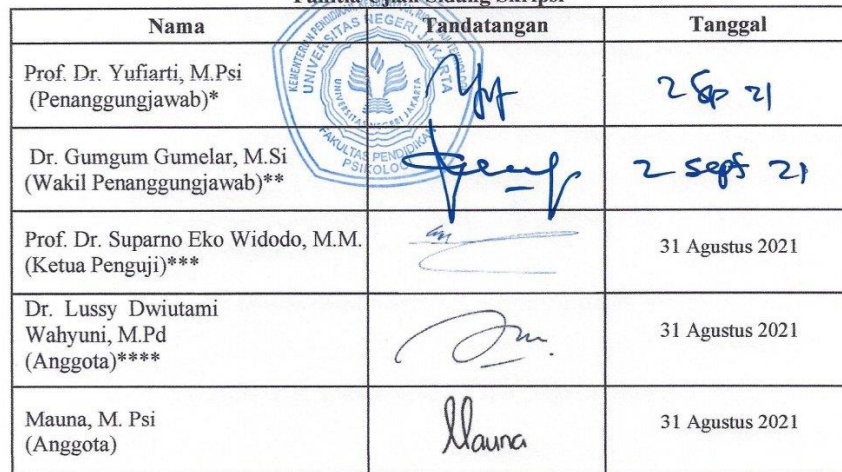 Panitia Ujian Sidang Skripsi
Nama Tandatangan Tanggal
Prof. Dr. Yufiarti, M.Psi
(Penanggungjawab)*
2 Sep 21
Dr. Gumgum Gumelar, M.Si
(Wakil Penanggungjawab)**
2 sept 21
Prof. Dr. Suparno Eko Widodo, M.M.
(Ketua Penguji)***
31 Agustus 2021
Dr. Lussy Dwiutami
Wahyuni, M.Pd
(Anggota)****
31 Agustus 2021
Mauna, M. Psi
(Anggota)
Mauna
31 Agustus 2021
UNIVERSITAS NEGERI JAKARTA
UNIVERSITAS NEGERI JAKARTA
FAKULTAS PENDIDIKAN
PSIKOLOGI